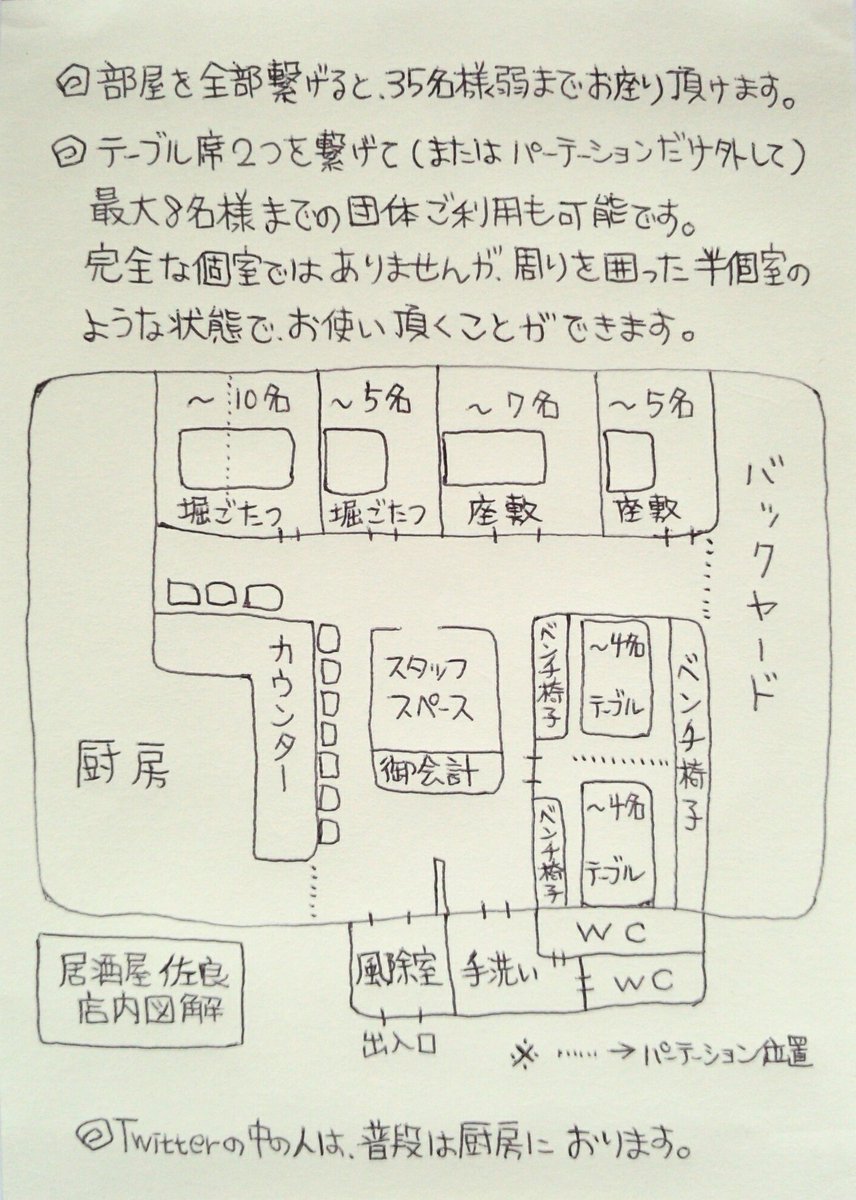 部屋を全部繋げると、35名様弱までお座り頂けます。
テーブル席2つを繋げて(またはパーテーションだけ外して)
最大8名様までの団体ご利用も可能です。
完全な個室ではありませんが、周りを囲った半個室の
ような状態で、お使い頂くことができます。
~10名
~5名
~7名
~5名
堀ごたつ
堀ごたつ
座敷
座敷
バックヤード
カウンター
スタッフ
スペース
御会計
厨房
ベンチ椅子
~4名
テーブル
ベンチ椅子
ベンチ椅子
~4名
テーブル
WC
WC
風除室
手洗い
出入口
居酒屋 佐良
店内図解
※ ……→パーテーション位置
Twitterの中の人は、普段は厨房におります。